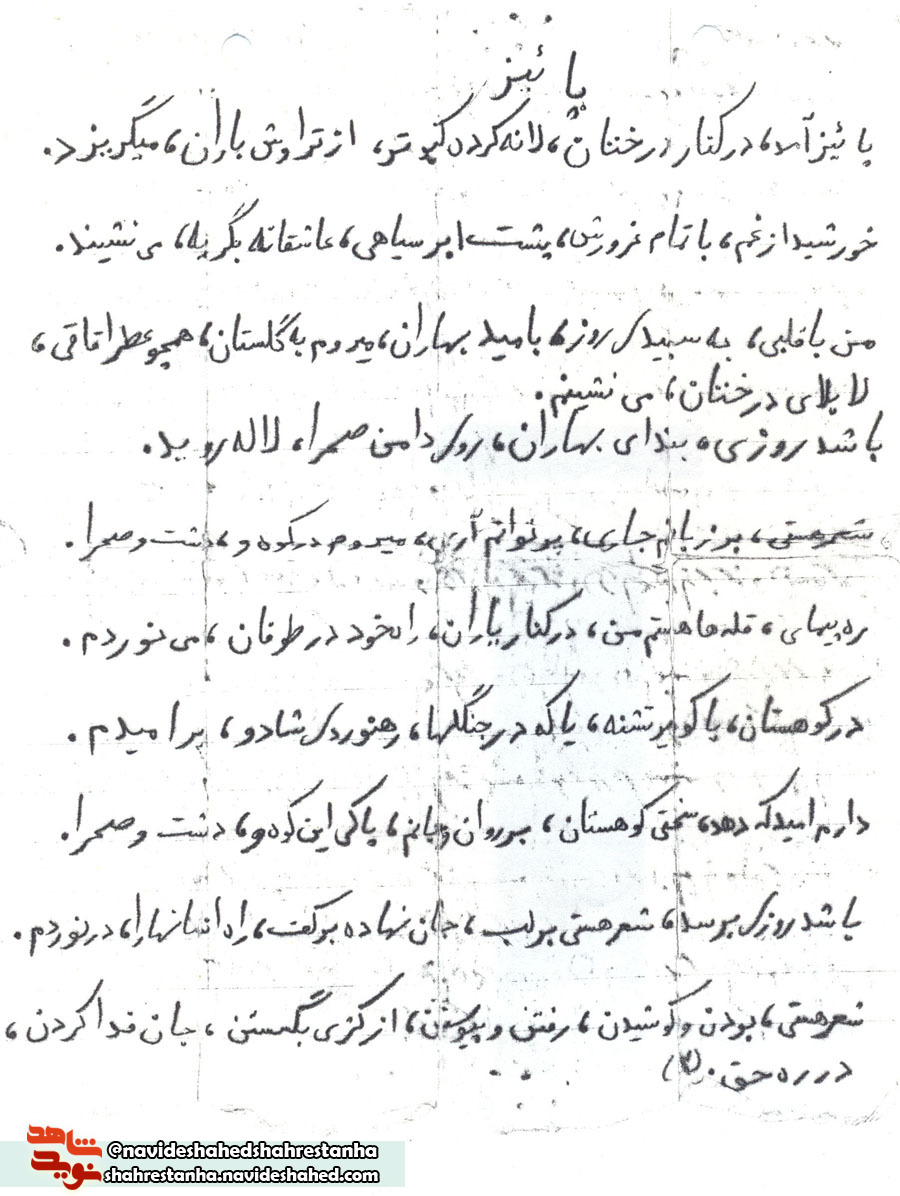 پائیز
پائیز آمد، در کنار درختان، لانه کرده کبوتر، از تراوش باران، میگریزد.
خورشید از غم، با تمام غرورش، پشت ابر سیاهی، عاشقانه بگریه، می نشیند.
من با قلبی، به سپیدی روز، بامید بهاران، میروم به گلستان، همچو عطر اقاقی،
لابلای درختان، می نشینم.
باشد روزی، بندای بهاران، روی دامن صحرا، لاله روید.
شعر هستی، بر زبانم جاری، پر توانم آری، میروم در کوه و، دشت و صحرا.
ره پیمای، قله ها هستم من، در کنار یاران، راه خود در طوفان، می نوردم.
در کوهستان، یا کویر تشنه، یا که در جنگلها، رهنوردی شاد و، پر امیدم.
دارم امید که دهد، سختی کوهستان، بر روان و جانم، پاکی این کوه و، دشت و صحرا.
باشد روزی برسد، شعر هستی بر لب، جان نهاده بر کف، راه انسانها را، در نوردم.
شعر هستی، بودن و کوشیدن، رفتن و پیوستن، از کژی بگسستن، جان فدا کردن،
در ره حق. (۲)
شاهد
نوید
@navideshahedshahrestanha
shahrestanha.navideshahed.com